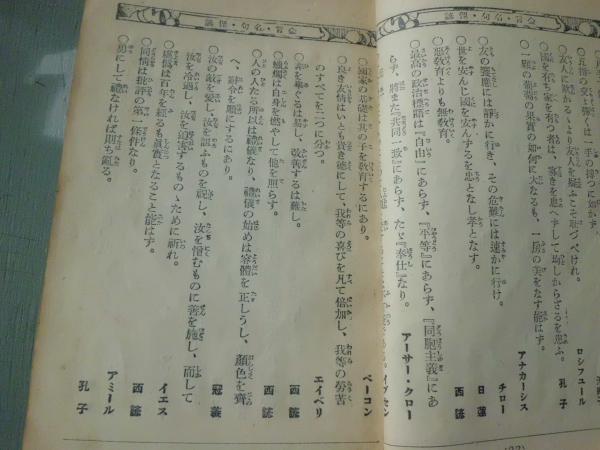 金言・名句・俚諺
友人に欺かるゝより友人を疑ふこそ恥づべけれ。
ロシフコール
國を有ち家を有つ者は、寡きを患へずして均しからざるを患ふ。
孔子
一顆の葡萄の果實の如何に大なるも、一房の美をなす能はず。
アナカーシス
友の饗應には靜かに行き、その危難には速かに行け。
チロー
世を安んじ國を安んずるを忠となし孝となす。
日蓮
惡敎育よりも無敎育。
西諺
最高の政治標語は『自由』にあらず、『平等』にあらず、『同胞主義』にあ
らず、將また『共同一致』にあらず、たゞ『奉仕』なり。
アーサー・クロー
金言・名句・俚諺
イブセン
〇國家の基礎は其の子を敎育するにあり。
ベーコン
〇良き友情はいとも貴き德にして、我等の喜びを凡て倍加し、我等の勞苦
のすべてを二つに分つ。
エイベリ
〇蠟燭は自身を燃やして他を照らす。
西諺
〇人の人たる所以は禮儀なり、禮儀の始めは容體を正しうし、顏色を齊
へ、辭令を順にするにあり。
冠義
〇汝の敵を愛し、汝を詛ふものを祝し、汝を憎むものに善を施し、而して
汝を冷遇し、汝を迫害するものゝために祈れ。
イエス
〇虛僞は百年を經るも眞實となること能はず。
西諺
〇同情は批評の第一條件なり。
アミール
〇勇にして禮なければ則ち亂る。
孔子